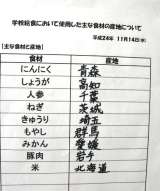 学校給食において使用した主な食材の産地について
平成24年 11月14日(水)
【主な食材と産地】
食材 産地
にんにく 青森
しょうが 高知
人参 千葉
ねぎ 茨城
きゅうり 埼玉
もやし 群馬
みかん 愛媛
豚肉 岩手
米 北海道